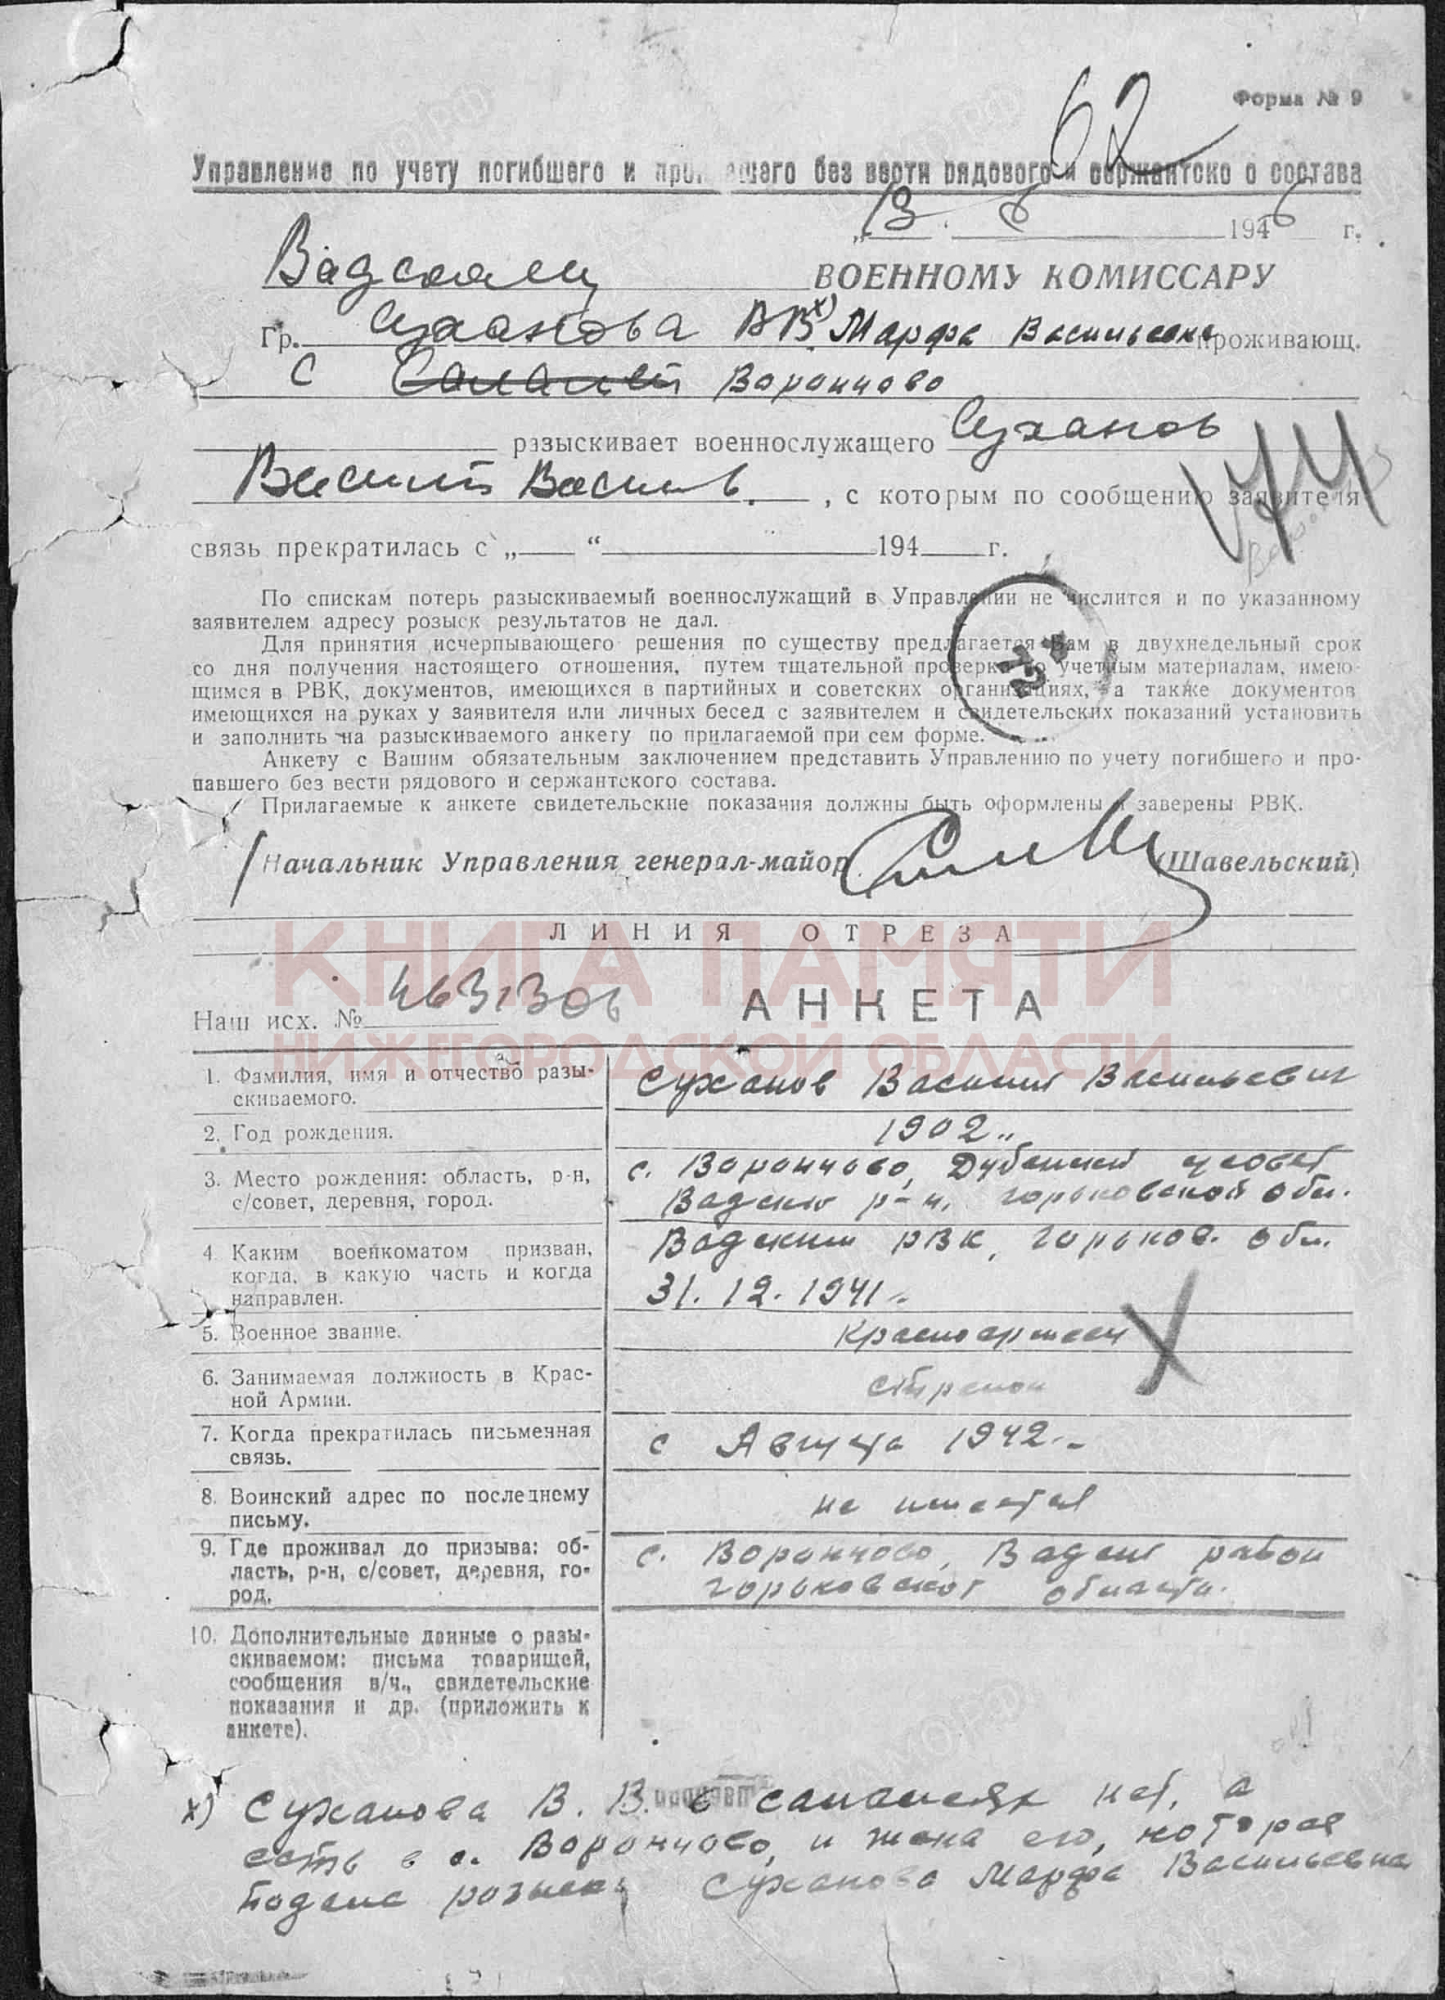 Форма № 9
62
Управление по учету погибшего и про шего без вести рядового и сержантско о состава
„13 6 1946 г.
Вадскому ВОЕННОМУ КОМИССАРУ
Гр. Суханова ВВ х) Марфа Васильевна проживающ.
с Воронцово
разыскивает военнослужащего Суханов
Василий Васильев. , с которым по сообщению заявителя
связь прекратилась с „ “ 194 г.
По спискам потерь разыскиваемый военнослужащий в Управлении не числится и по указанному
заявителем адресу розыск результатов не дал.
Для принятия исчерпывающего решения по существу предлагается Вам в двухнедельный срок
со дня получения настоящего отношения, путем тщательной проверки по учетным материалам, имею-
щимся в РВК, документов, имеющихся в партийных и советских организациях, а также документов
имеющихся на руках у заявителя или личных бесед с заявителем и свидетельских показаний установить
и заполнить на разыскиваемого анкету по прилагаемой при сем форме.
Анкету с Вашим обязательным заключением представить Управлению по учету погибшего и про-
павшего без вести рядового и сержантского состава.
Прилагаемые к анкете свидетельские показания должны быть оформлены и заверены РВК.
Начальник Управления генерал-майор (Шавельский)
ЛИНИЯ ОТРЕЗА
КНИГА ПАМЯТИ
НИЖЕГОРОДСКОЙ ОБЛАСТИ
Наш исх. № 463130б
АНКЕТА
1. Фамилия, имя и отчество разы-
скиваемого.
Суханов Василий Васильевич
2. Год рождения.
1902..
3. Место рождения: область, р-н,
с/совет, деревня, город.
с. Воронцово, Дубенский с/совет
Вадский р-н, горьковской обл.
4. Каким военкоматом призван,
когда, в какую часть и когда
направлен.
Вадским рвк, горьков. обл.
31.12.1941.
5. Военное звание.
красноармеец
6. Занимаемая должность в Крас-
ной Армии.
стрелок
7. Когда прекратилась письменная
связь.
с Августа 1942..
8. Воинский адрес по последнему
письму.
не имеется
9. Где проживал до призыва: об-
ласть, р-н, с/совет, деревня, го-
род.
с. Воронцово, Вадский район
горьковской области.
10. Дополнительные данные о разы-
скиваемом: письма товарищей,
сообщения в/ч., свидетельские
показания и др. (приложить к
анкете).
х) Суханова В. В. в нет, а
есть в с. Воронцово, и жена его, которая
подала розыск Суханова Марфа Васильевна